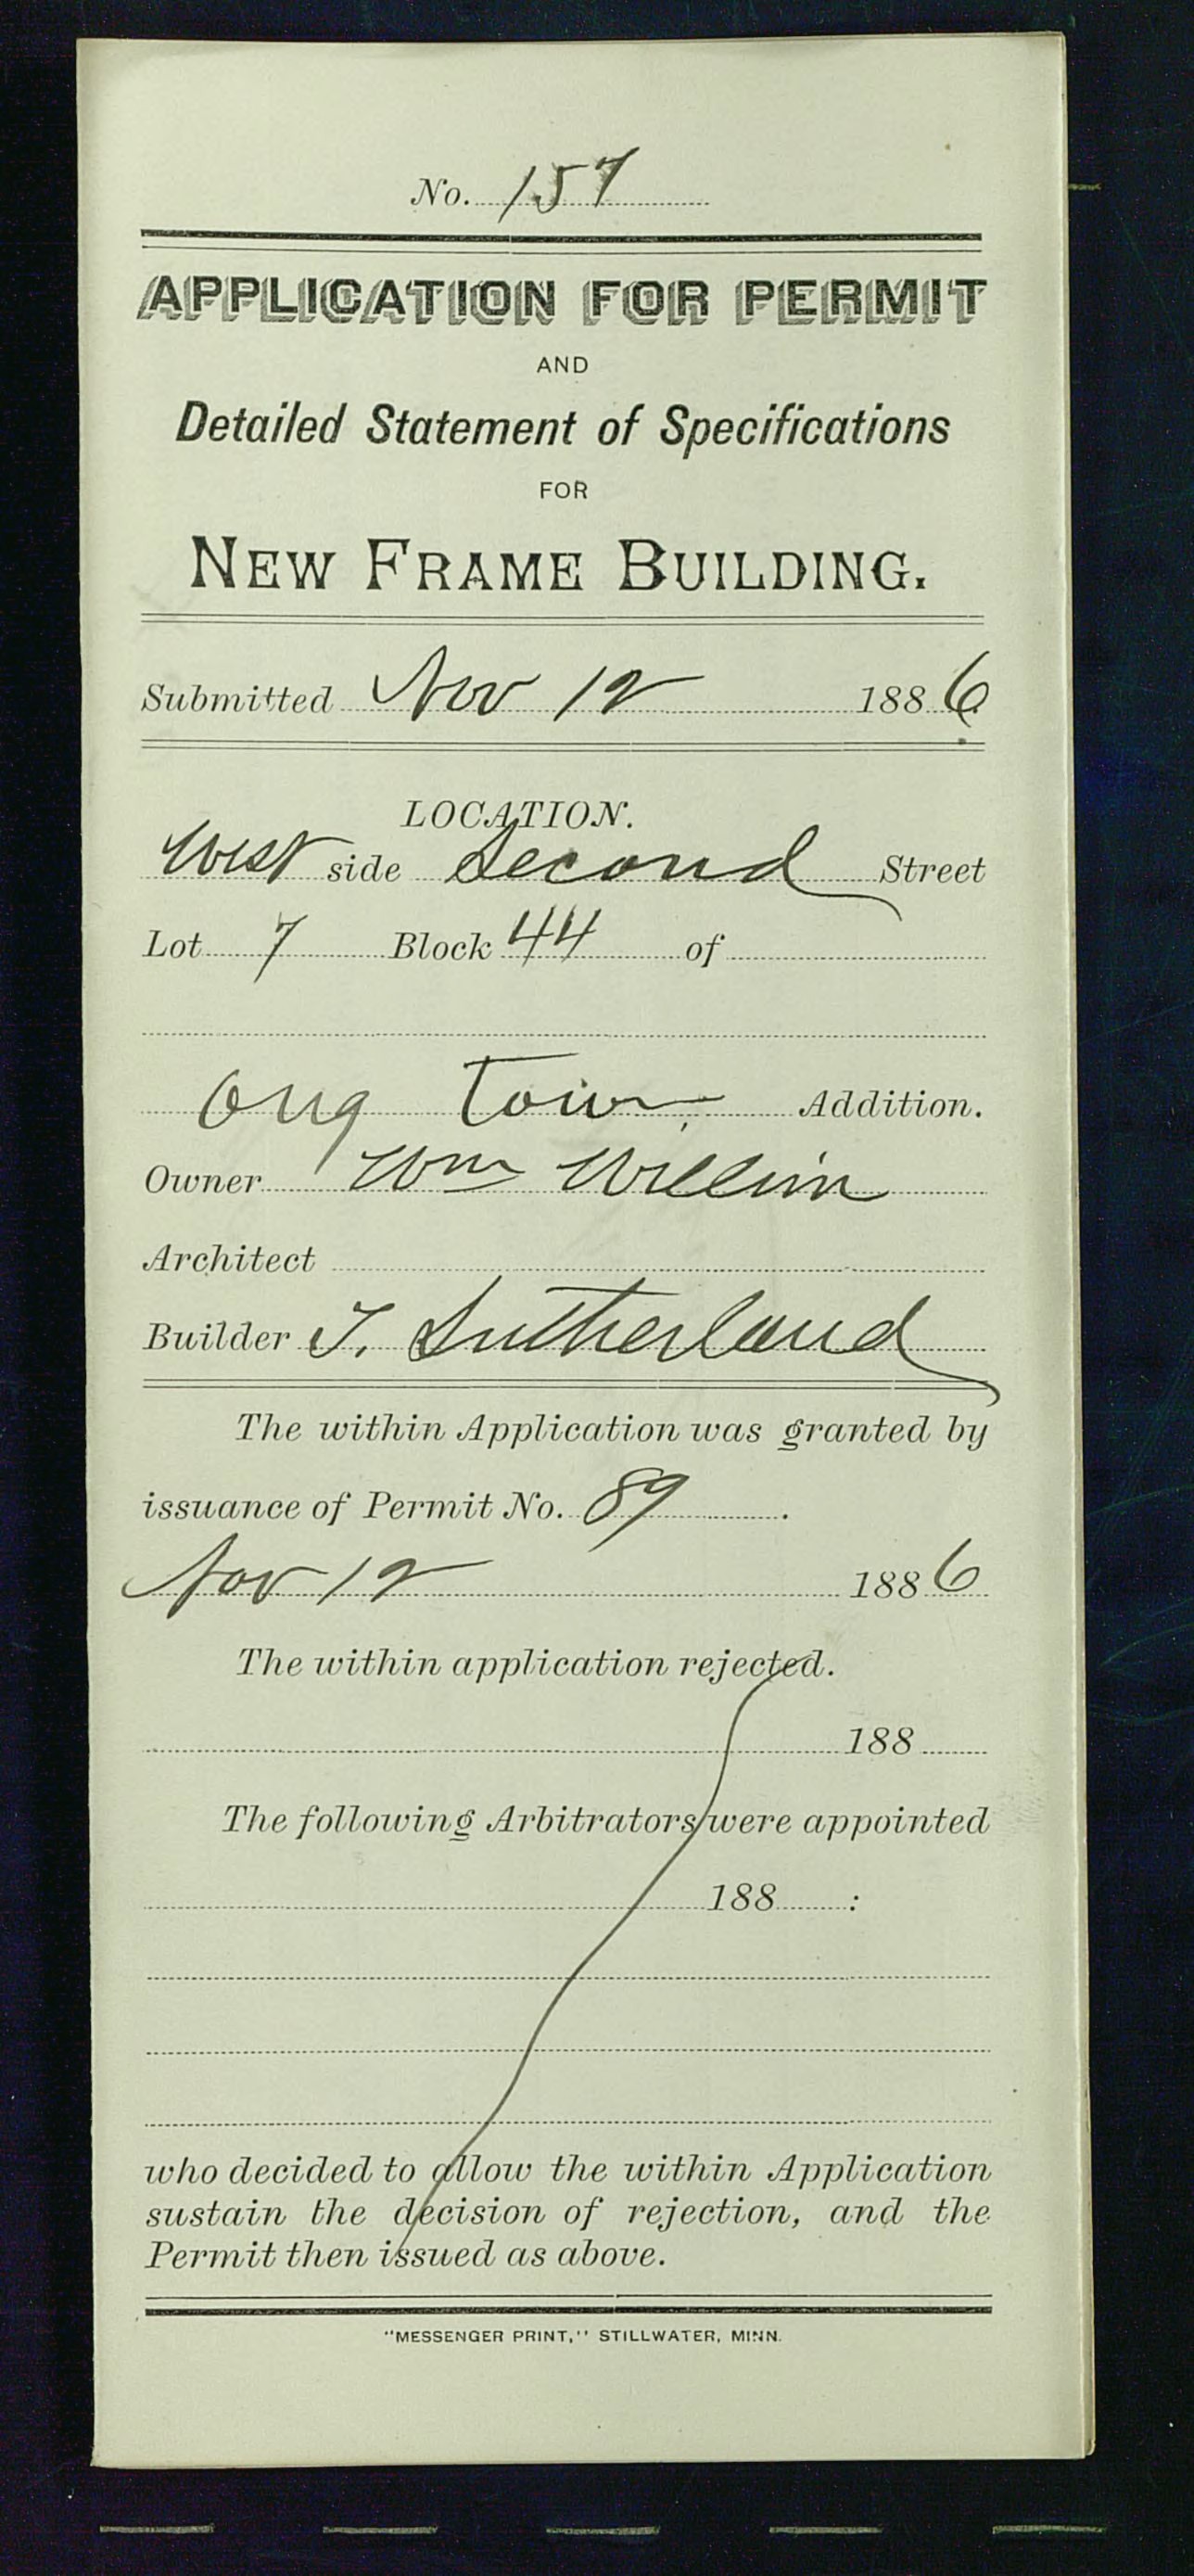 No. 157
APPLICATION FOR PERMIT
AND
Detailed Statement of Specifications
FOR
NEW FRAME BUILDING.
Submitted Nov 12 1886
LOCATION.
West side Second Street
Lot 7 Block 44 of
Orig Town Addition.
Owner Wm Willim
Architect
Builder T. Sutherland
The within Application was granted by
issuance of Permit No. 89.
Nov 12 1886
The within application rejected.
188
The following Arbitrators were appointed
188 :
who decided to allow the within Application
sustain the decision of rejection, and the
Permit then issued as above.
"MESSENGER PRINT," STILLWATER, MINN.